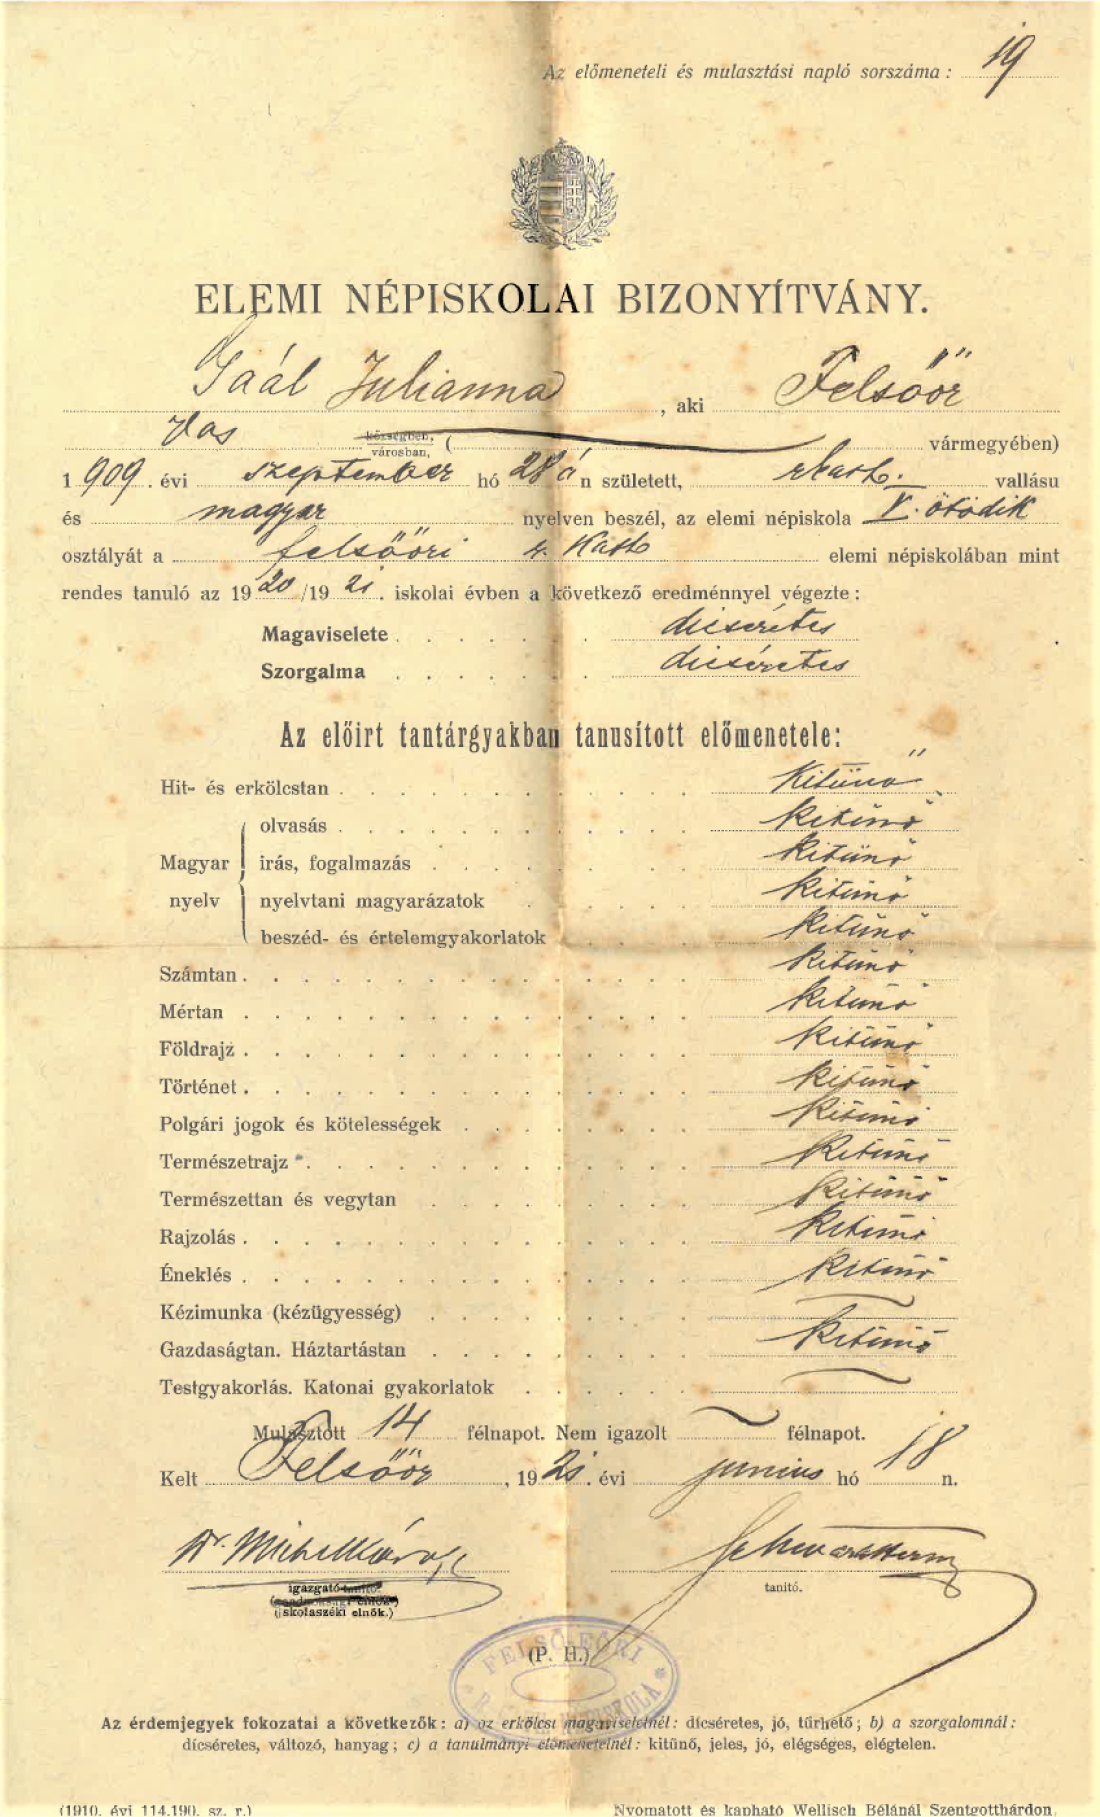 Az előmeneteli és mulasztási napló sorszáma: 19
ELEMI NÉPISKOLAI BIZONYÍTVÁNY.
Gaál Julianna, aki Felsőőr
Vas községben, városban, ( vármegyében)
1909. évi szeptember hó 28 án született, r kath. vallásu
és magyar nyelven beszél, az elemi népiskola V. ötödik
osztályát a felsőőri r. Kath elemi népiskolában mint
rendes tanuló az 1920/1921. iskolai évben a következő eredménnyel végezte:
Magaviselete dicséretes
Szorgalma dicséretes
Az előirt tantárgyakban tanusított előmenetele:
Hit- és erkölcstan kitünő
olvasás kitünő
Magyar irás, fogalmazás kitünő
nyelv nyelvtani magyarázatok kitünő
beszéd- és értelemgyakorlatok kitünő
Számtan kitünő
Mértan kitünő
Földrajz kitünő
Történet kitünő
Polgári jogok és kötelességek kitünő
Természetrajz kitünő
Természettan és vegytan kitünő
Rajzolás kitünő
Éneklés kitünő
Kézimunka (kézügyesség)
Gazdaságtan. Háztartástan kitünő
Testgyakorlás. Katonai gyakorlatok
Mulasztott 14 félnapot. Nem igazolt – félnapot.
Kelt Felsőőr, 1921. évi junius hó 18 n.
Dr. Michel Károly
igazgató-tanító. tanító.
(iskolaszéki elnök.)
(P. H.)
FELSŐ-EŐRI
R. KATH. NÉPISKOLA
Az érdemjegyek fokozatai a következők: a) az erkölcsi magaviseletnél: dícséretes, jó, tűrhető; b) a szorgalomnál:
dícséretes, változó, hanyag; c) a tanulmányi előmenetelnél: kitünő, jeles, jó, elégséges, elégtelen.
(1910. évi 114.190. sz. r.) Nyomatott és kapható Wellisch Bélánál Szentgotthárdon.